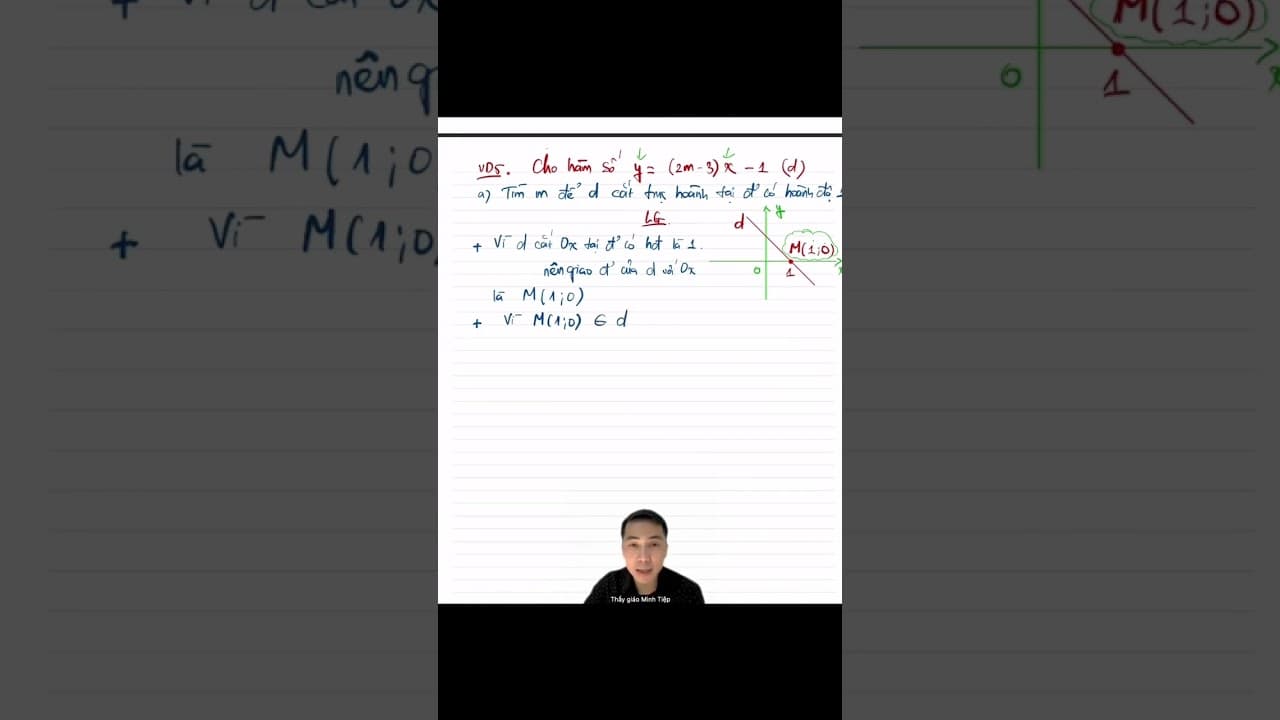 VD5. Cho hàm số y = (2m-3)x - 1 (d)
a) Tìm m để d cắt trục hoành tại đ' có hoành độ 1
LG
+ Vì d cắt Ox tại đ' có hđ là 1.
nên giao đ' của d với Ox
là M(1;0)
+ Vì M(1;0) ∈ d
d
y
M(1;0)
0
1
x
Thầy giáo Minh Tiệp
+ Vì d cắt Ox
nên g
là M(1;0
+ Vì M(1;0
M(1;0)
0
1
x